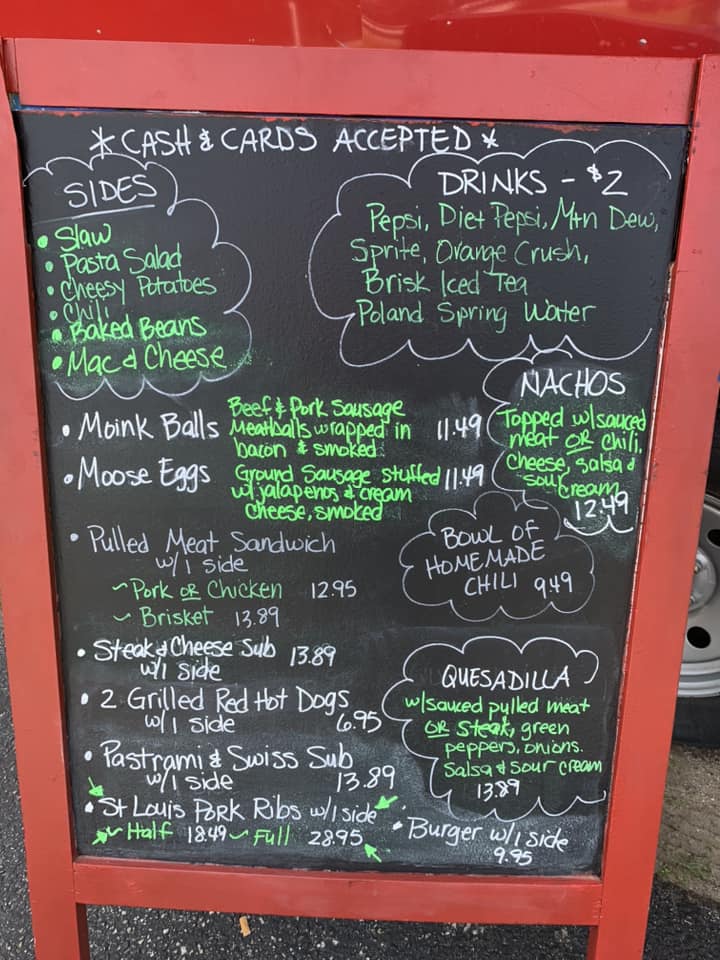 * CASH & CARDS ACCEPTED *
SIDES
• Slaw
• Pasta Salad
• Cheesy Potatoes
• Chili
• Baked Beans
• Mac & Cheese
DRINKS - $2
Pepsi, Diet Pepsi, Mtn Dew,
Sprite, Orange Crush,
Brisk Iced Tea
Poland Spring Water
NACHOS
Topped w/sauced
meat OR chili,
cheese, salsa &
sour cream
12.49
• Moink Balls Beef & Pork Sausage
Meatballs wrapped in 11.49
bacon & smoked
• Moose Eggs Ground Sausage stuffed 11.49
w/jalapenos & cream
cheese, smoked
BOWL OF
HOMEMADE
CHILI 9.49
• Pulled Meat Sandwich
w/1 side
~ Pork OR Chicken 12.95
~ Brisket 13.89
• Steak & Cheese Sub 13.89
w/1 side
• 2 Grilled Red Hot Dogs
w/1 side 6.95
• Pastrami & Swiss Sub
w/1 side 13.89
• St Louis Pork Ribs w/1 side
~ Half 18.49 ~ Full 28.95
QUESADILLA
w/sauced pulled meat
OR Steak, green
peppers, onions.
Salsa & sour cream
13.89
• Burger w/1 side
9.95